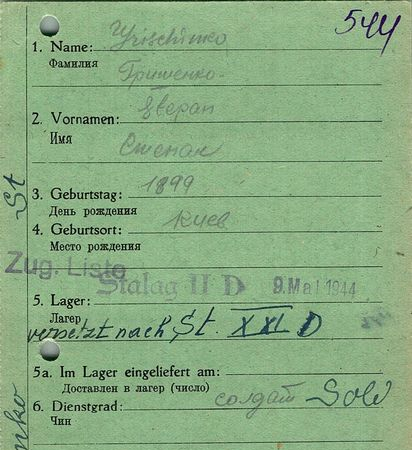 544
1. Name: Yrischinko
Фамилия Гришенко
2. Vornamen: Stepan
Имя Степан
3. Geburtstag: 1899
День рождения
4. Geburtsort: Киев
Место рождения
Zug. Liste
Stalag II D 9. Mai 1944
5. Lager:
Лагер
versetzt nach St. XXI D
5a. Im Lager eingeliefert am:
Доставлен в лагер (число)
6. Dienstgrad: солдат Sold
Чин
St
nko